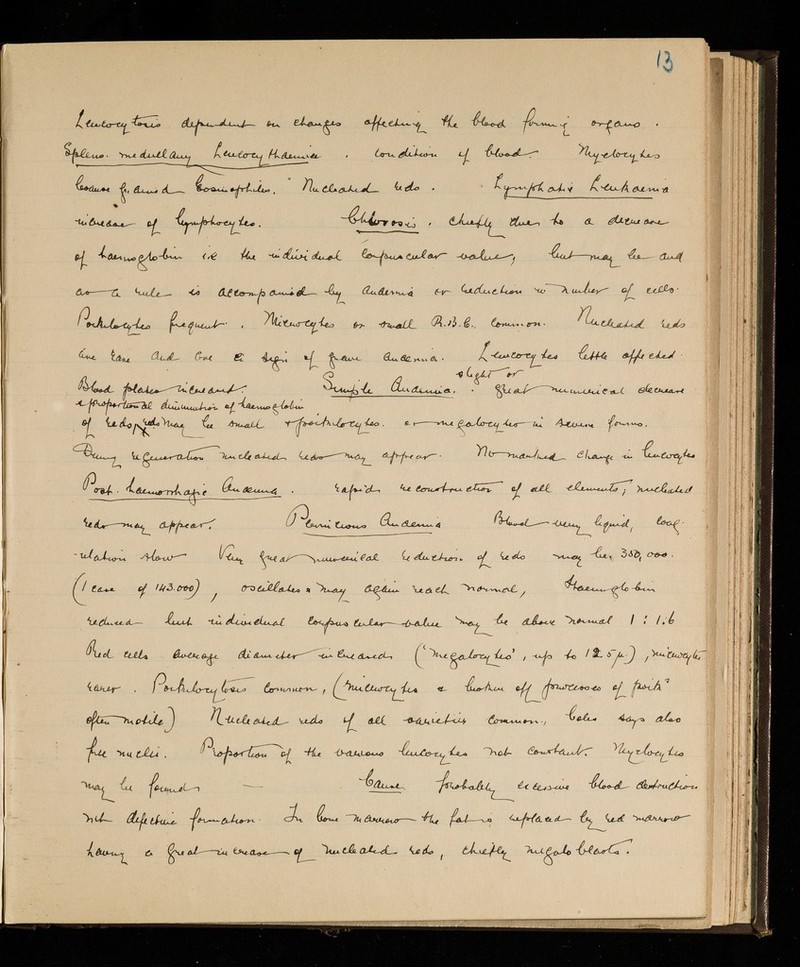 13
Leucocytosis dependent on changes affecting the blood forming organs.
Spleno-medullary Leucocythaemia. Condition of blood. Myelocytes
coarse grained eosinophiles. Nucleated reds. Lymphatic Leukaemia
increase of lymphocytes. Chlorosis. Chiefly due to a decrease
of haemoglobin i.e. the individual corpuscular value, but may be and
as a rule is accompanied by anaemia or reduction in number of cells.
Poikilocytes frequent. Microcytes or small R.B.C. common. Nucleated reds
are rare and are a sign of grave anaemia. Leucocytes little affected.
Blood plates increased. Simple Anaemia. slight or great numerical decrease
& proportional diminution of haemoglobin
of reds, reds may be small & poikilocytes. or megalocytes in severe forms.
During regeneration nucleated reds may appear. No marked change in leucocytes
Post-haemorrhagic Anaemia. rapid reconstruction of all elements; nucleated
reds may appear. Pernicious Anaemia Blood very liquid, coag-
-ulation slow Very great numerical reduction of reds may be 350,000.
(1 case of 143.000), oscillates & may again reach normal, Haemoglobin
reduced but individual corpuscular value may be above normal 1 : 1.6
Red cells average diameter increased ("megalocytes", up to 12.5 μ), microcytes
rarer. Poikilocytosis common, (microcytes & broken off processes of poik"
often motile) Nucleated reds of all varieties common, Coles says also
free nuclei. Proportion of the various leucocytes not constant. Myelocytes
may be found — Cause probably excessive blood destruction
not defective formation. In bone marrow the fat is replaced by red marrow
having a great increase of nucleated reds, chiefly megaloblasts.